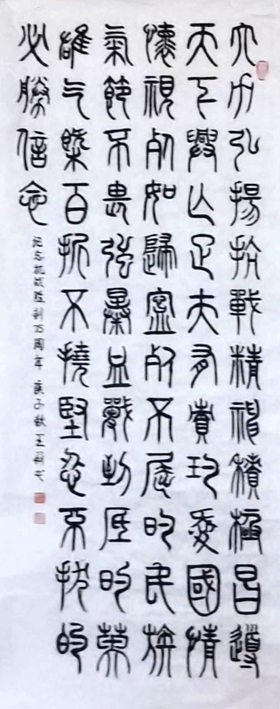 大力弘揚抗戰精神積極昌導
天下興亡匹夫有責的愛國情
懷視死如歸寧死不屈的民族
氣節不畏強暴血戰到底的英
雄气概百折不撓堅忍不拔的
必勝信念
纪念抗战胜利75周年 庚子秋王